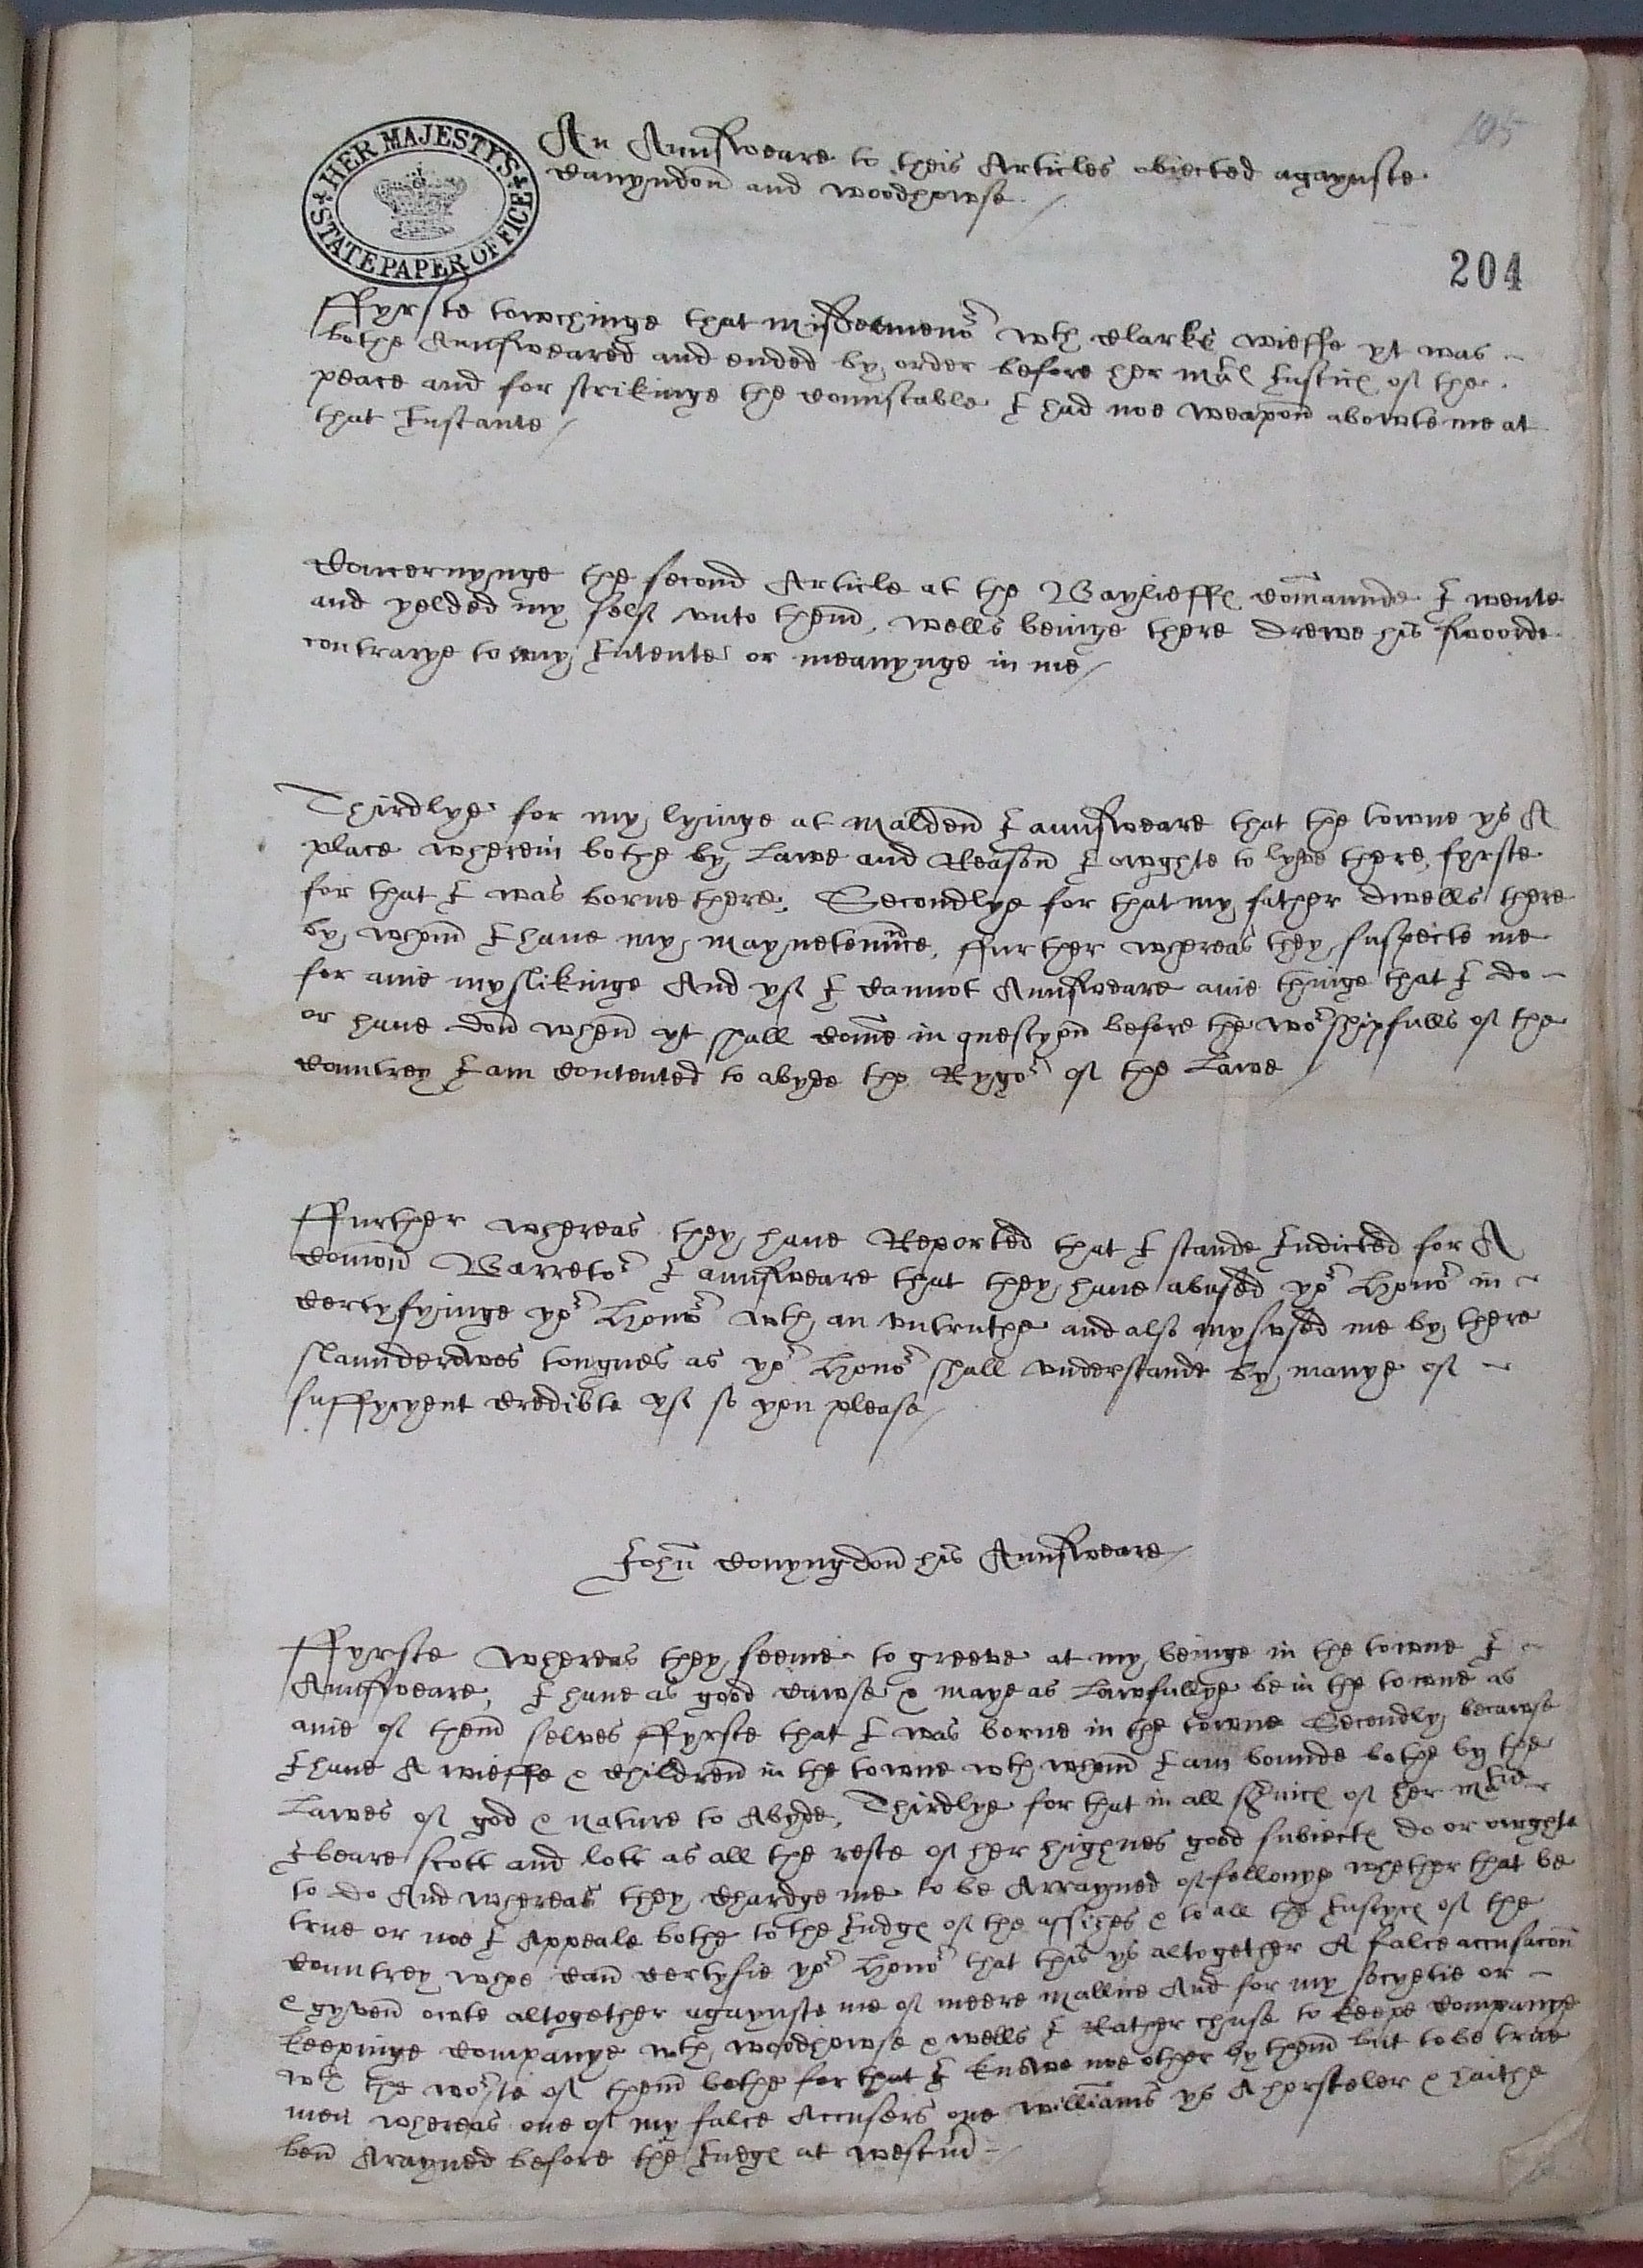 HER MAJESTYS
STATE PAPER OFFICE
195
204
An Aunsweare to theis Articles obiected agaynste
Conyndon and Woodhowse
ffyrste towchinge that misdemeno^r w^th Clarkes wieffe yt was
bothe Aunsweared and ended by order before her ma^tes Justices of the
peace and for strikinge the Counstable I had noe weapon abowte me at
that Instante
Concernynge the second Article at the Baylieffes Commaunde I wente
and yelded my self vnto them, wells beinge there drewe his swoorde
contrarye to any Intente or meanynge in me
Thirdlye for my lyinge at Malden I aunsweare that the towne ys A
place wherein bothe by Lawe and Reason I owghte to lyve there, fyrste
for that I was borne there, Secondlye for that my father dwells there
by whom I haue my mayneteunnce, ffurther whereas they suspecte me
for anie myslikinge And yf I Cannot Aunsweare anie thinge that I do
or haue don when yt shall Come in questyon before the wo^rshipfulls of the
Countrey I am Contented to abyde the Rygo^r of the Lawe
ffurther whereas they haue Reported that I stande Indicted for A
Comon Barreto^r I aunsweare that they haue abused yo^r Hono^r in
Certyfyinge yo^r Hono^r w^th an vntruthe and also mysvsed me by there
slaunderowes tongues as yo^r Hono^r shall vnderstande by manye of
suffycyent Credible yf so you please
John Conyngdon his Aunsweare
ffyrste Whereas they seeme to greeve at my beinge in the towne I
Aunsweare, I haue as good Cawse & maye as Lawfullye be in the towne as
anie of them selves ffyrste that I was borne in the towne Secondly becawse
I haue A wieffe & Children in the towne w^th whom I am bounde bothe by the
Lawes of god & nature to Abyde, Thirdlye for that in all s^ruices of her ma^tie
I beare scott and lott as all the reste of her highenes good subiectes do or owghte
to do And whereas they Chardge me to be Arrayned of fellonye whether that be
true or noe I Appeale bothe to the Judges of the assises & to all the Justyces of the
Countrey whoe Can Certyfie yo^r Hono^r that this ys altogether A falce accusacon
& gyven owte altogether agaynste me of meere mallice And for my socyetie or
keepinge Companye w^th woodhowse & wells I Rather chuse to keepe Companye
w^th the wo^rste of them bothe for that I knowe noe other by them but to be true
men whereas one of my falce Accusers one williams ys A horsteler & haithe
ben Arayned before the Judges at westm